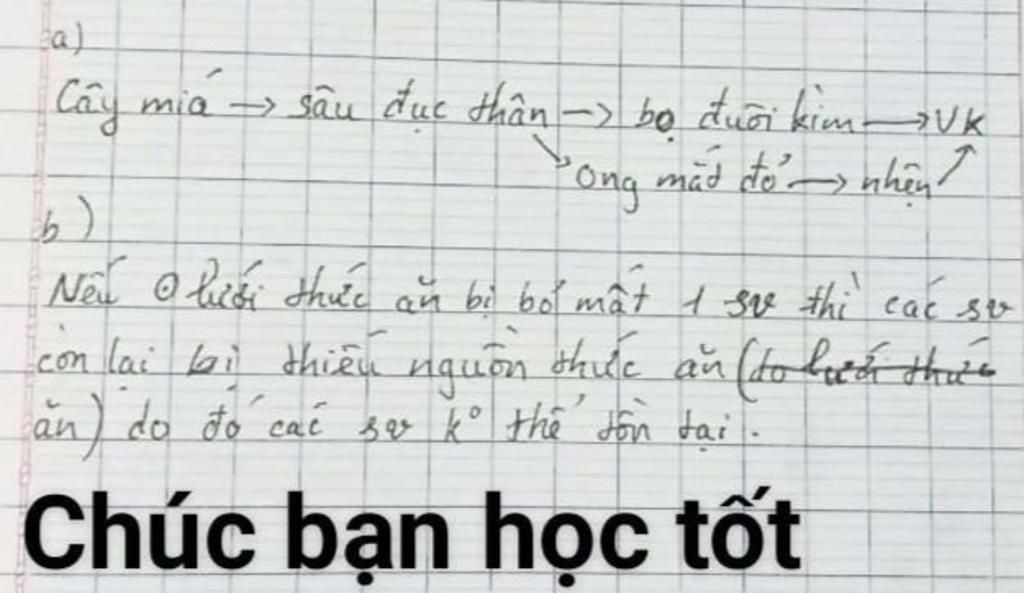 a)
Cây miá → sâu đục thân → bọ đuôi kìm → VK
Ong mắt đỏ → nhện
b)
Nếu ở lưới thức ăn bị bỏ mất 1 sv thì các sv
còn lại bị thiếu nguồn thức ăn (do lưới thức
ăn) do đó các sv k° thể tồn tại.
Chúc bạn học tốt